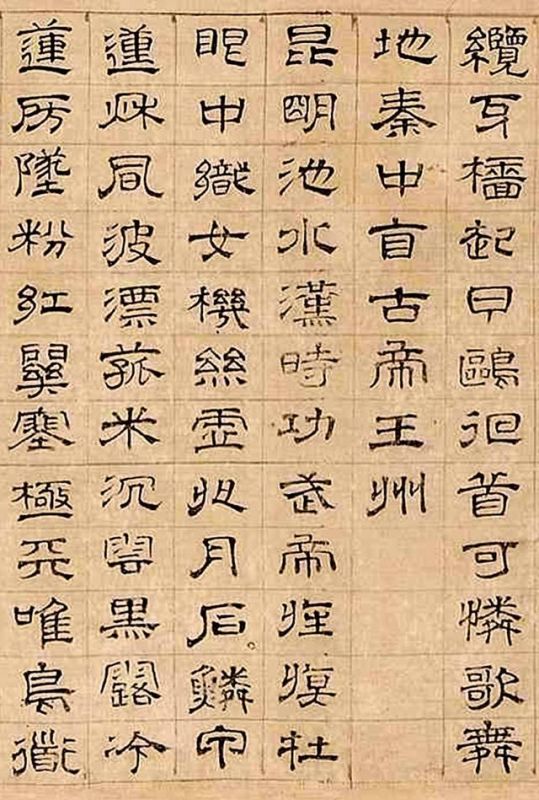 纜牙檣起白鷗徊首可憐歌舞
地秦中自古帝王州
昆明池水漢時功武帝旌旗在
眼中織女機絲虛夜月石鱗甲
動秋風波漂菰米沉雲黑露冷
蓮房墜粉紅關塞極天唯鳥道